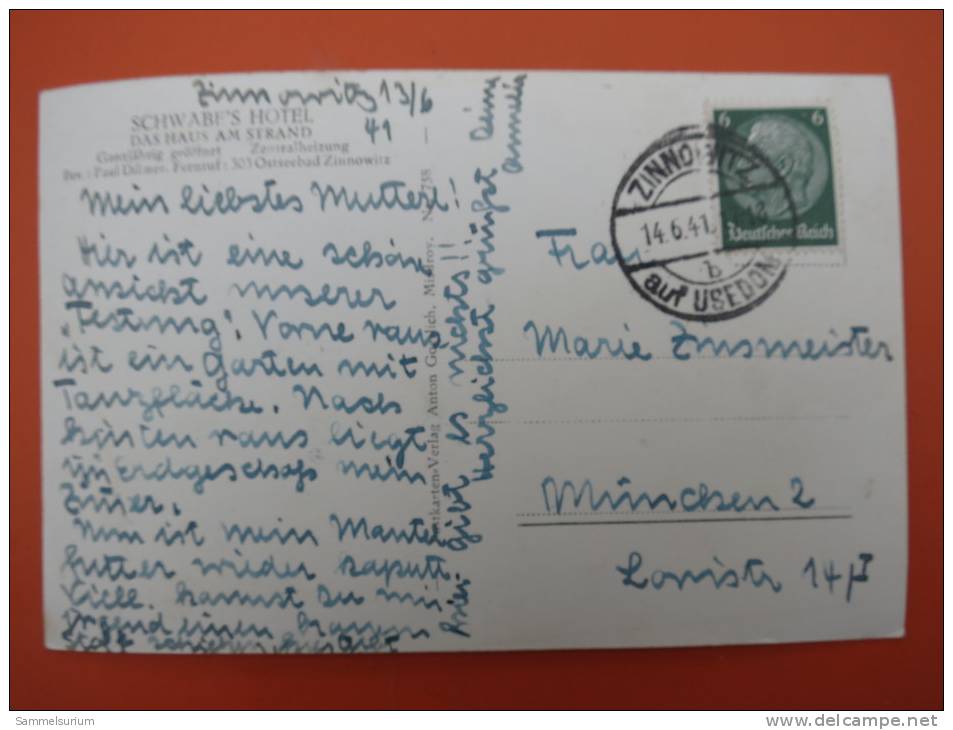 Zinnowitz 13/6
41
SCHWABE'S HOTEL
DAS HAUS AM STRAND
Ganzjährig geöffnet Zentralheizung
Bes.: Paul Fernruf: 303 Ostseebad Zinnowitz
Mein liebstes Mutterl!
Hier ist eine schöne
Ansicht unserer
"Festung". Vorne raus
ist ein Garten mit
Tanzfläche. Nach
hinten raus liegt
im Erdgeschoß mein
Zimer.
Nun ist mein Mantel-
futter wieder kaputt.
Viell. kannst du mir
irgend einen braunen
Stoff
gibt es nichts!!
Herzlichst grüßt Deine
Postkarten-Verlag Anton Misdroy. N 758
6 6
Deutsches Reich
ZINNOWITZ
14.6.41.
b
auf USEDOM
Frau
Marie Zinsmeister
München 2
Loristr 14/I
Sammelsurium
www.delcampe.net